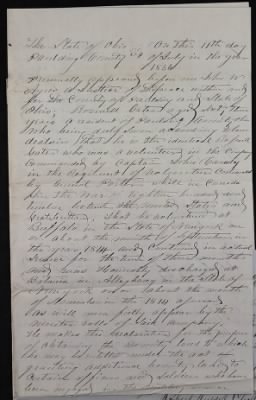 The State of Ohio On this 11th day
Paulding County of July in the year
1855
Personally appeared before me John W
a Justice of the peace within and
for the County of Paulding and State of
Ohio, aged sixty four
years a resident of Paulding County Ohio
who being duly sworn according to law
declares that he is the identical
who was a volunteer in the Company
Commanded by Captain John
in the regiment of Volunteers Commanded
by General Porter while in Canada
in the War of eighteen hundred and
twelve between the United States and
Great Britain, That he volunteered at
Buffalo in the State of New York on
or about the month of
the year 1814 and continued in actual
service for the term of three months
and was Honorably discharged at
Batavia in in the State of
New York on or about the month
of November in the 1814
as will more fully appear by the
muster rolls of said Company.
He makes this declaration for the purpose
of obtaining the bounty land to which
he may be entitled under the act
granting additional bounty land to
certain officers and soldiers who have
been engaged in the military